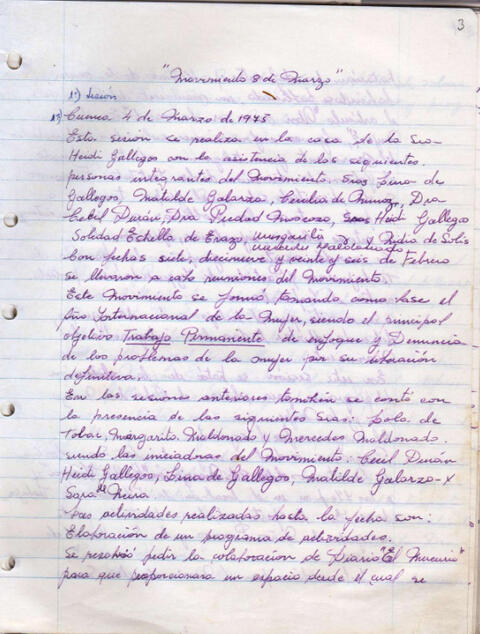 3
"Movimiento 8 de Marzo"
1º) Sesión
1º) Cuenca 4 de Marzo de 1975
Esta sesión se realiza en la casa de la Sra
Heidi Gallegos con la asistencia de las siguientes
personas integrantes del Movimiento. Sras Lina de
Gallegos, Matilde Galarza, Cecilia de Munoz, Dra
Cecil Durán, Dra Piedad Moscoso, Sras Heidi Gallegos
Soledad Estrella de Erazo, Margarita y Nidia de Solis
Mercedes Maldonado
Con fechas siete, diecinueve y veinte y seis de Febrero
se llevaron a cabo reuniones del Movimiento.
Este Movimiento se formó, tomando como base el
Año Internacional de la Mujer, siendo el principal
objetivo Trabajo Permanente de enfoque y Denuncia
de los problemas de la mujer por su liberación
definitiva.
En las sesiones anteriores también se contó con
la presencia de las siguientes Sras: Lola de
Tobar, Margarita Maldonado y Mercedes Maldonado.
siendo las iniciadoras del Movimiento: Cecil Durán
Heidi Gallegos, Lina de Gallegos, Matilde Galarza - X
Sara Neira
Las actividades realizadas hasta la fecha son:
Elaboración de un programa de actividades.
Se resolvió pedir la colaboración de Diario "El Mercurio"
para que proporcionara un espacio desde el cual se